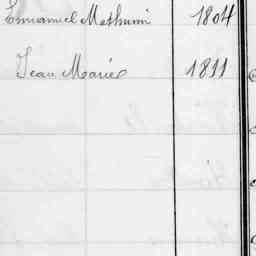 Emmanuel Mathurin 1804
Jean Marie 1811